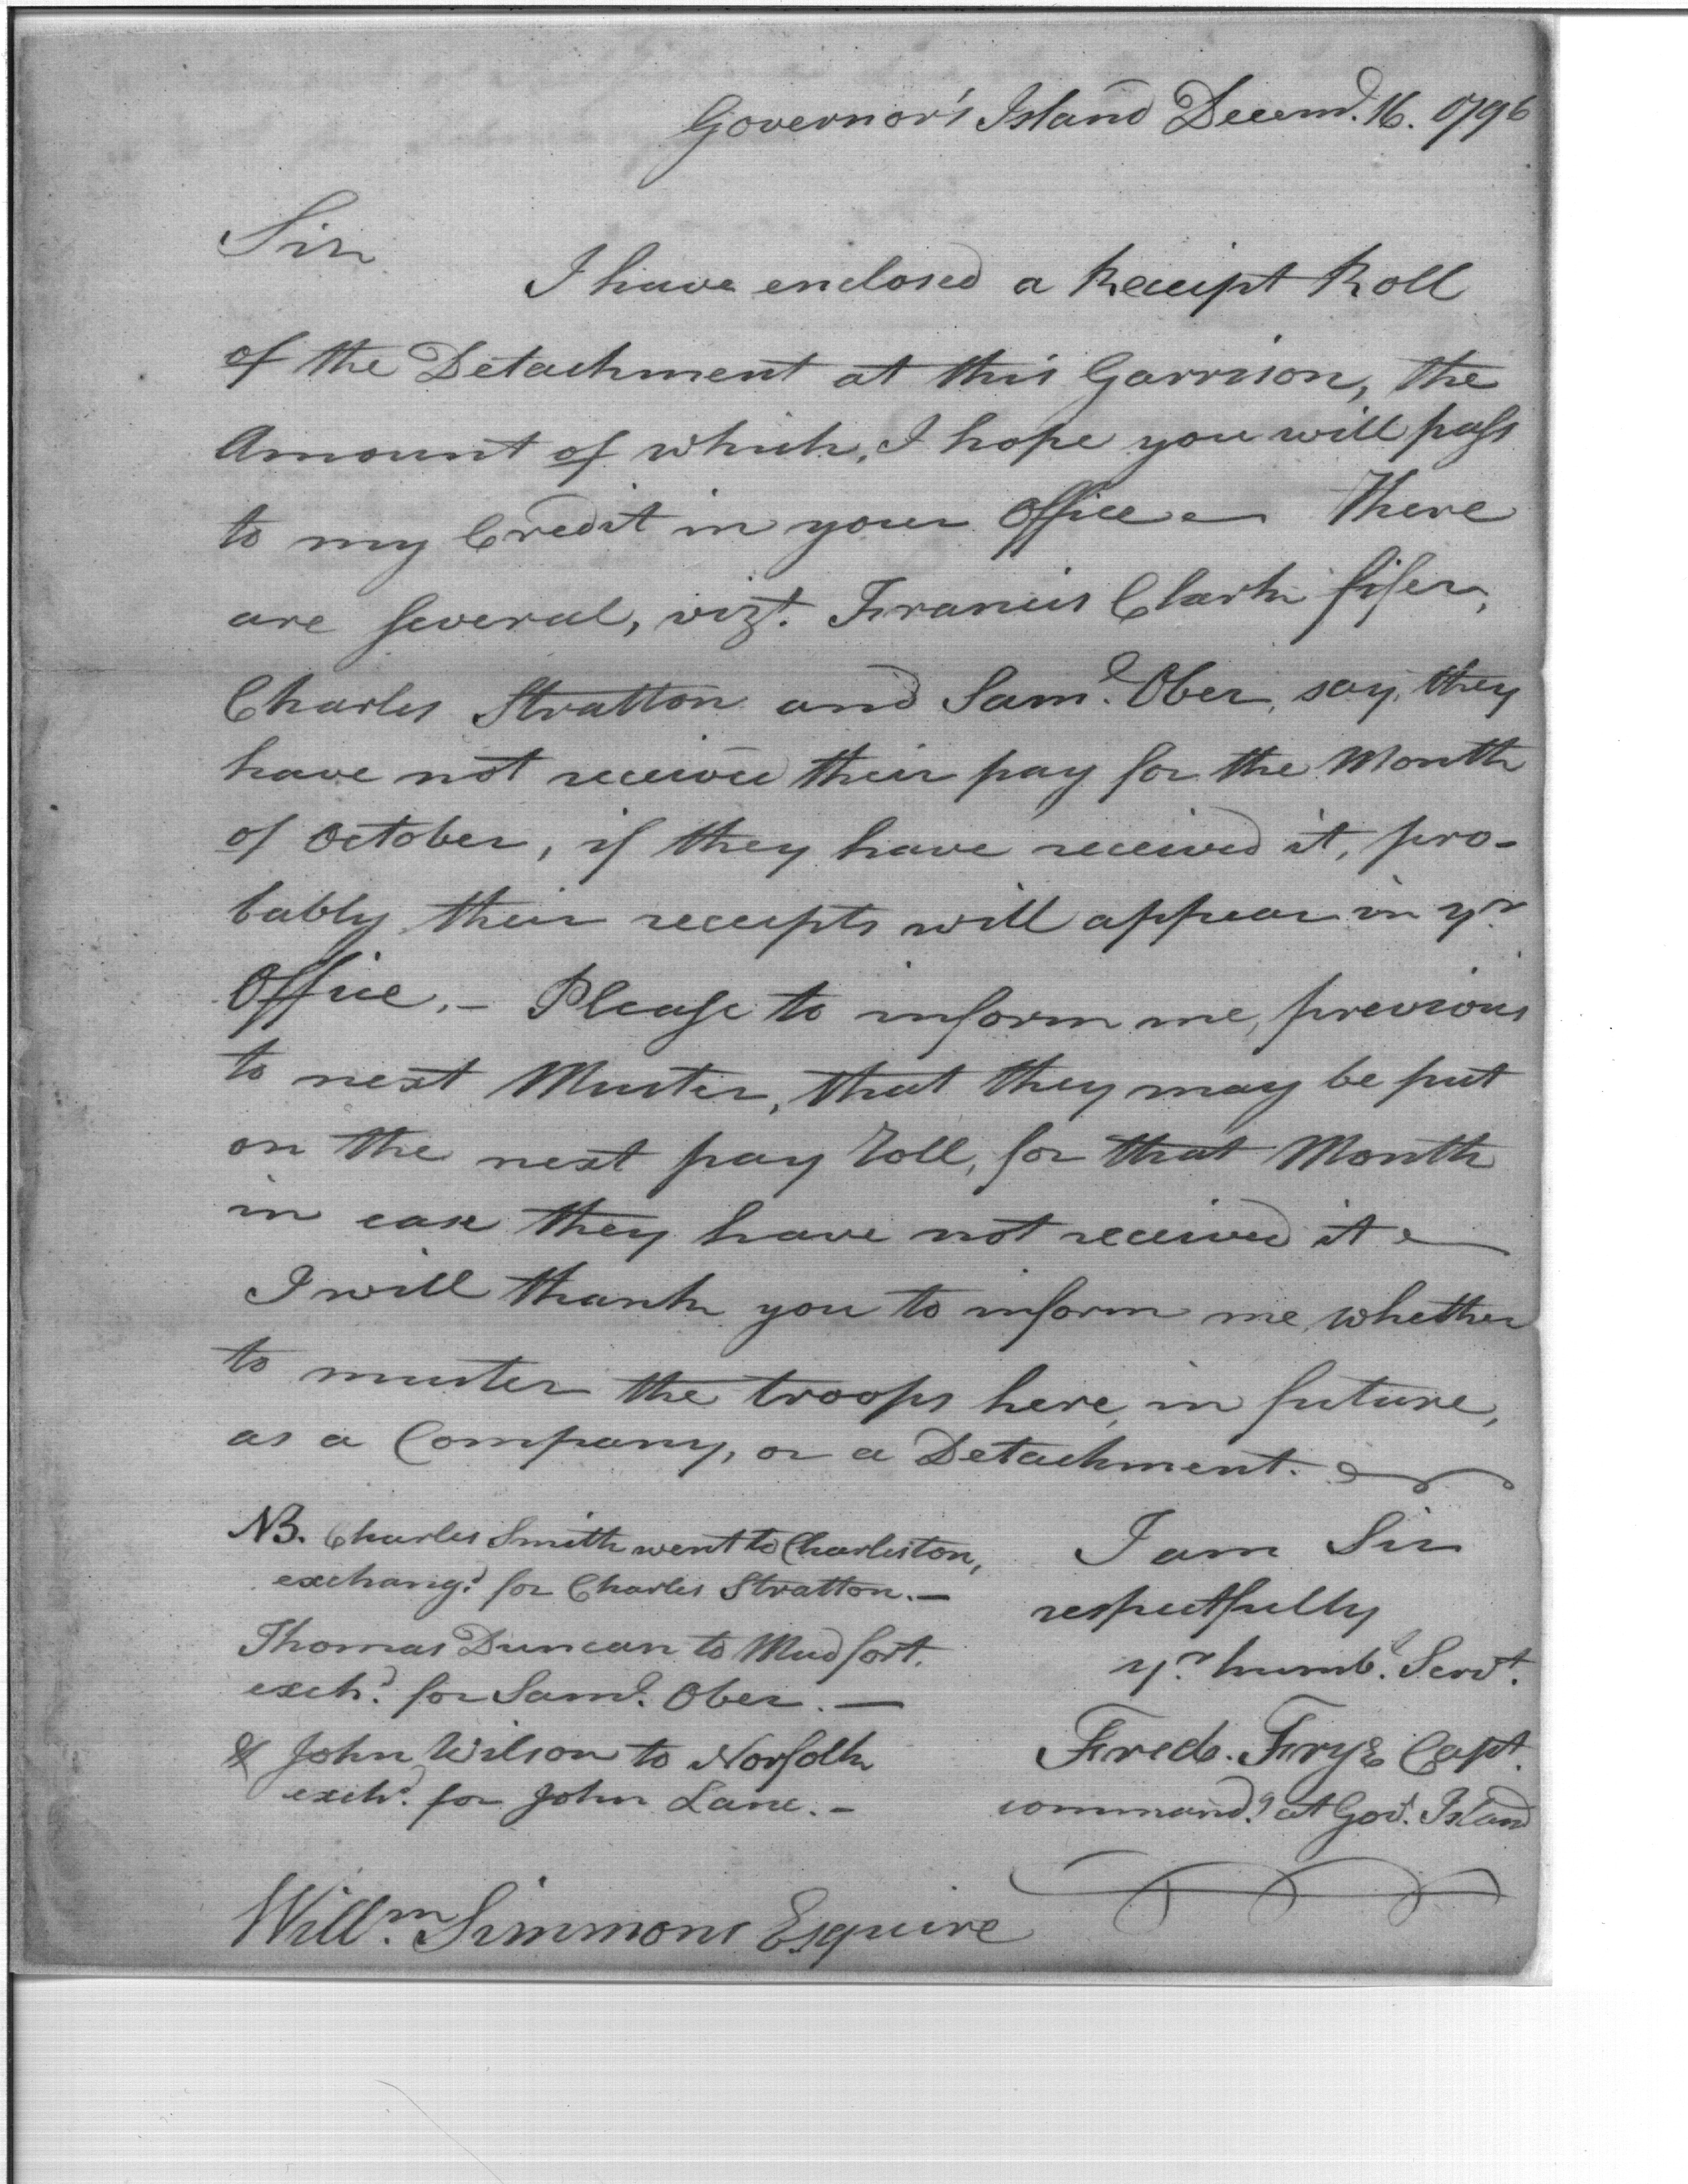 Governor's Island Decemr. 16. 1796
Sir
I have enclosed a Receipt Roll
of the Detachment at this Garrison, the
Amount of which, I hope you will pass
to my Credit in your Office — There
are several, vizt. Francis Clark fifer,
Charles Stratton and Saml. Ober, say, they
have not received their pay for the Month
of October, if they have received it, pro-
bably their receipts will appear in yr.
Office. — Please to inform me, previous
to next Muster, that they may be put
on the next pay roll, for that Month
in case they have not received it —
I will thank you to inform me, whether
to muster the troops here, in future,
as a Company, or a Detachment.
I am Sir
respectfully
yr. humbl. Servt.
Fredk. Frye Capt.
commandg. at Govr. Island
NB. Charles Smith went to Charleston,
exchangd. for Charles Stratton. —
Thomas Duncan to Mud fort.
exchd. for Saml. Ober. —
& John Wilson to Norfolk
exchd. for John Lane. —
Willm. Simmons Esquire